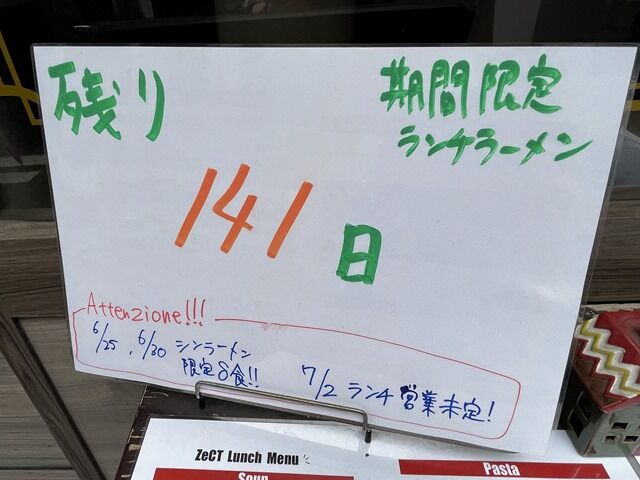 残り
期間限定
ランチラーメン
141日
Attenzione!!!
6/25, 6/30 シンラーメン
限定8食!!
7/2 ランチ営業未定!
ZeCT Lunch Menu
Soup
Pasta